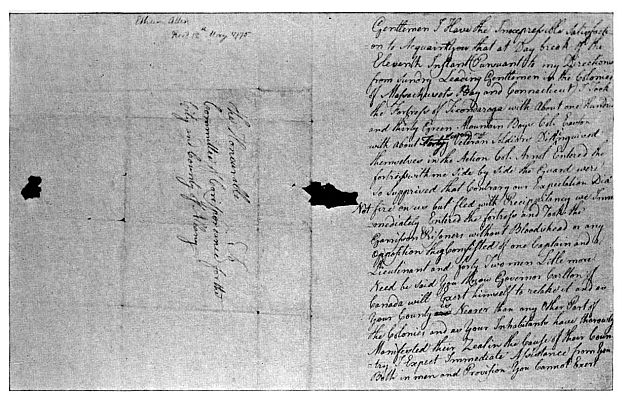 Ethan Allen
Recd 12th May 1775
The Honourable
Committee of Correspondence for the
City and County of Albany
Gentlemen I Have the Inexpressible Satisfacti
on to Acquaint you that at Day break of the
Eleventh Instant Pursuant to my Directions
from Sundry Leading Gentlemen in the Colonies
of Massachusets Bay and Connecticut I Took
the Fortress of Ticondaroga with About one Hundred
and thirty Green Mountain Boys Col. Easton
with about Veteran Soldiers Distinguised
themselves in the Action Col. Arnol Entered the
fortress with me Side by Side the Guard were
So Supprised that Contrary our Expectation Did
Not fire on us but fled with Precipitancy we Imm
ediately Entered the fortress and Took the
Garrison Prisoners without Bloodshead or any
Opposition they Consisted of one Captain and a
Lieutenant and forty Two men Little more
Need be Said You Know Governor Carlton of
Canada will Exert himself to retake it and as
Your County is Nearer than any Other Part of
the Colonies and as your Inhabitants have thorowly
Manifested their Zeal in the Cause of their Coun
try I Expect Immediate Assistance from You
Both in men and Provision You Cannot Exert